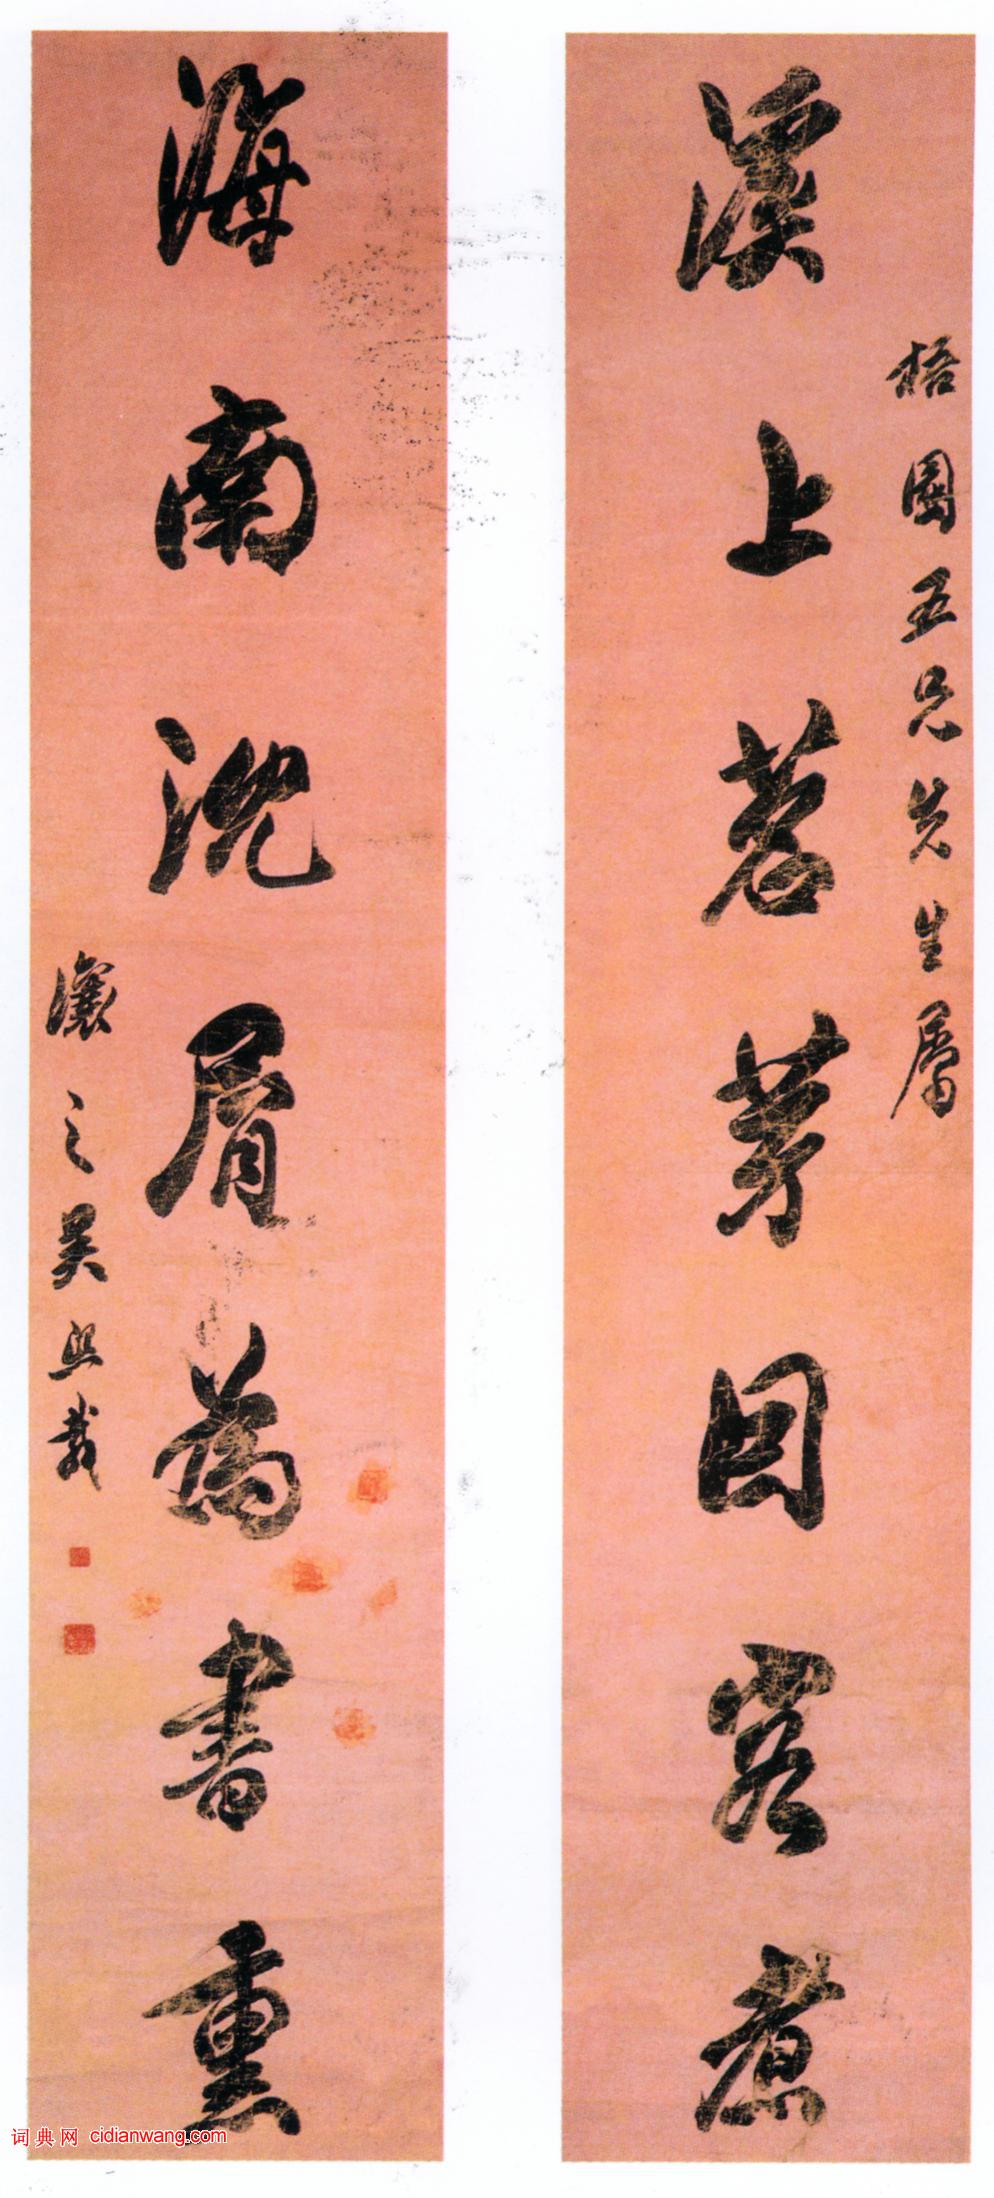 溪上茗芽因客煮
梧園五兄先生属
海南沈屑為書熏
讓之吴熙載
词典网 cidianwang.com